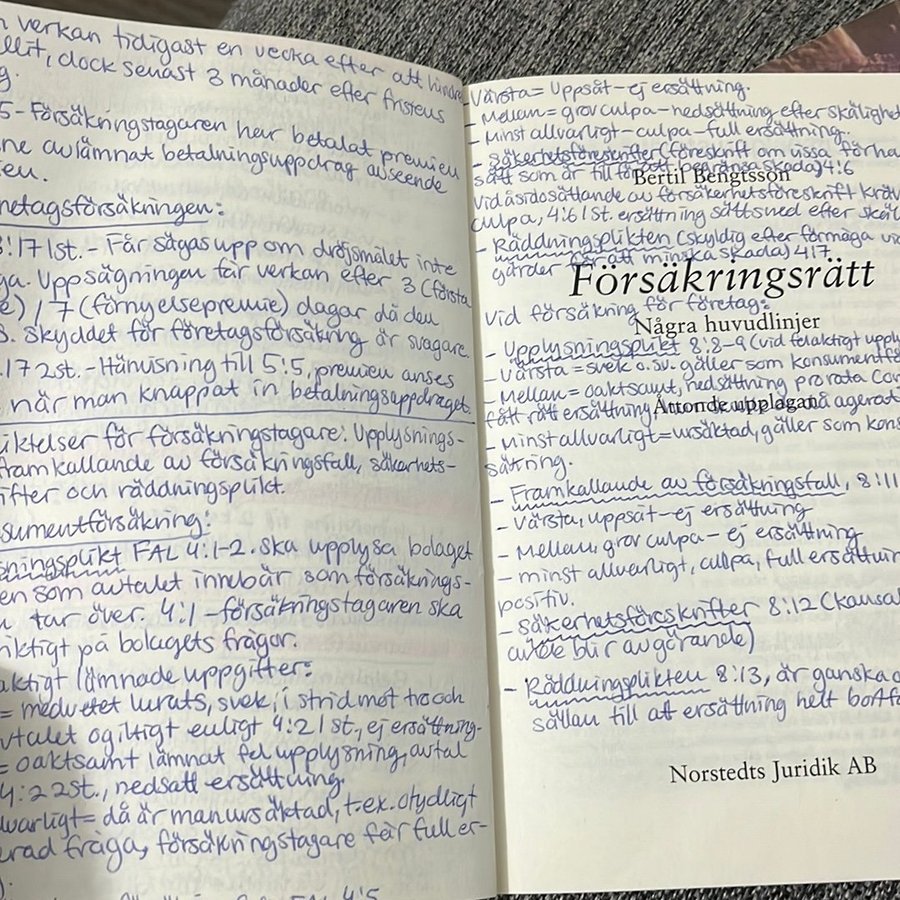 verkan tidigast en vecka efter att hindre
ellit, dock senast 3 månader efter fristens
g.
5 - Försäkringstagaren har betalat premien
ne avlämnat betalningsuppdrag avseende
ien.
retagsförsäkringen:
8:17 1st. - Får sägas upp om dröjsmålet inte
ga. Uppsägningen får verkan efter 3 (första
e) / 7 (förnyelsepremie) dagar då den
s. Skyddet för företagsförsäkring är svagare.
17 2st. - Hänvisning till 5:5, premien anses
när man knappat in betalningsuppdraget.
iktelser för försäkringstagare: Upplysnings-
framkallande av försäkringsfall, säkerhets-
ifter och räddningsplikt.
sumentförsäkring:
sningsplikt FAL 4:1-2. Ska upplysa bolaget
en som avtalet innebär som försäkrings-
n tar över 4:1 - försäkringstagaren ska
riktigt på bolagets frågor.
aktigt lämnade uppgifter:
= medvetet lurats, svek, i strid mot tro och
vtalet ogiltigt enligt 4:2 1st, ej ersättning.
= oaktsamt lämnat fel upplysning, avtal
4:2 2st., nedsatt ersättning.
lvarligt = då är man ursäktad, t.ex. otydligt
erad fråga, försäkringstagare får full er-
4:5
- Värsta = Uppsåt - ej ersättning.
- Mellan = grov culpa - nedsättning efter skälighet
- Minst allvarligt - culpa - full ersättning.
- Säkerhetsföreskrifter (föreskrift om vissa förha
sätt som är till för att begränsa skada) 4:6
Bertil Bengtsson
Vid åsidosättande av försäkerhetsföreskrift kräv
culpa, 4:6 1st. ersättning sätts ned efter skäl
- Räddningsplikten (skyldig efter förmåga vid
gärder för att minska skada) 4:7
Försäkringsrätt
Vid försäkring för företag:
Några huvudlinjer
- Upplysningsplikt 8:8-9 (vid felaktigt upply
- Värsta = svek o.sv. gäller som konsumentfö
- Mellan = oaktsamt, nedsättning pro rata (om
fått rätt ersättning agerat
Åttonde upplagan
- minst allvarligt = ursäktad, gäller som kons
säkring.
- Framkallande av försäkringsfall, 8:11
- Värsta, uppsåt - ej ersättning
- Mellan, grov culpa - ej ersättning
- minst allvarligt, culpa, full ersättnin
positiv.
- Säkerhetsföreskrifter 8:12 (kausal
blir avgörande)
- Räddningsplikten 8:13, är ganska o
sällan till att ersättning helt bortfa
Norstedts Juridik AB